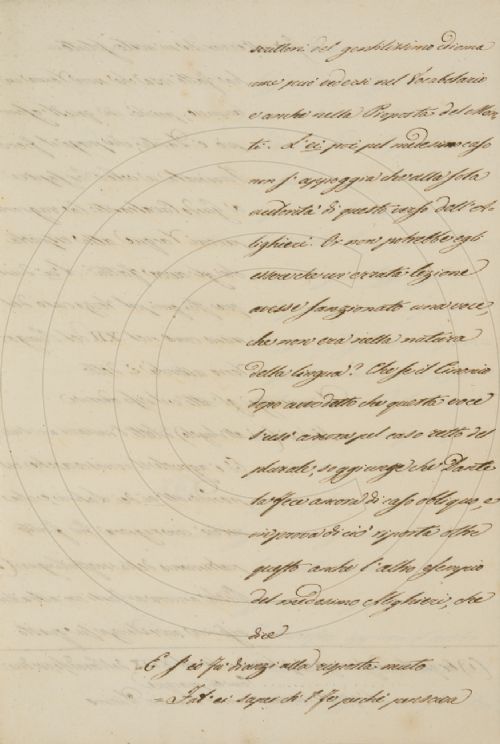 scrittori del gentilissimo idioma
come può vedersi nel Vocabolario
e anche nella Proposta del Mon,
ti. L'ei poi pel medesimo caso
non s'appoggia che alla sola
autorità di questo verso dell'Al
lighieri. Or non potrebbe egli
essere che un'errata lezione
avesse sanzionato una voce,
che non era nella natura
della lingua? Che se il Cinonio
dopo aver detto che questa voce
s'usò ancora pel caso retto del
plurale, soggiunge che Dante
la fece ancora di caso obliquo, e
in prova di ciò riporta oltre
questo anche l'altro esempio
del medesimo Alighieri, che
dice
E s'io fui dianzi alla risposta muto
= Fat' ei saper ch'i' fei perché pensava